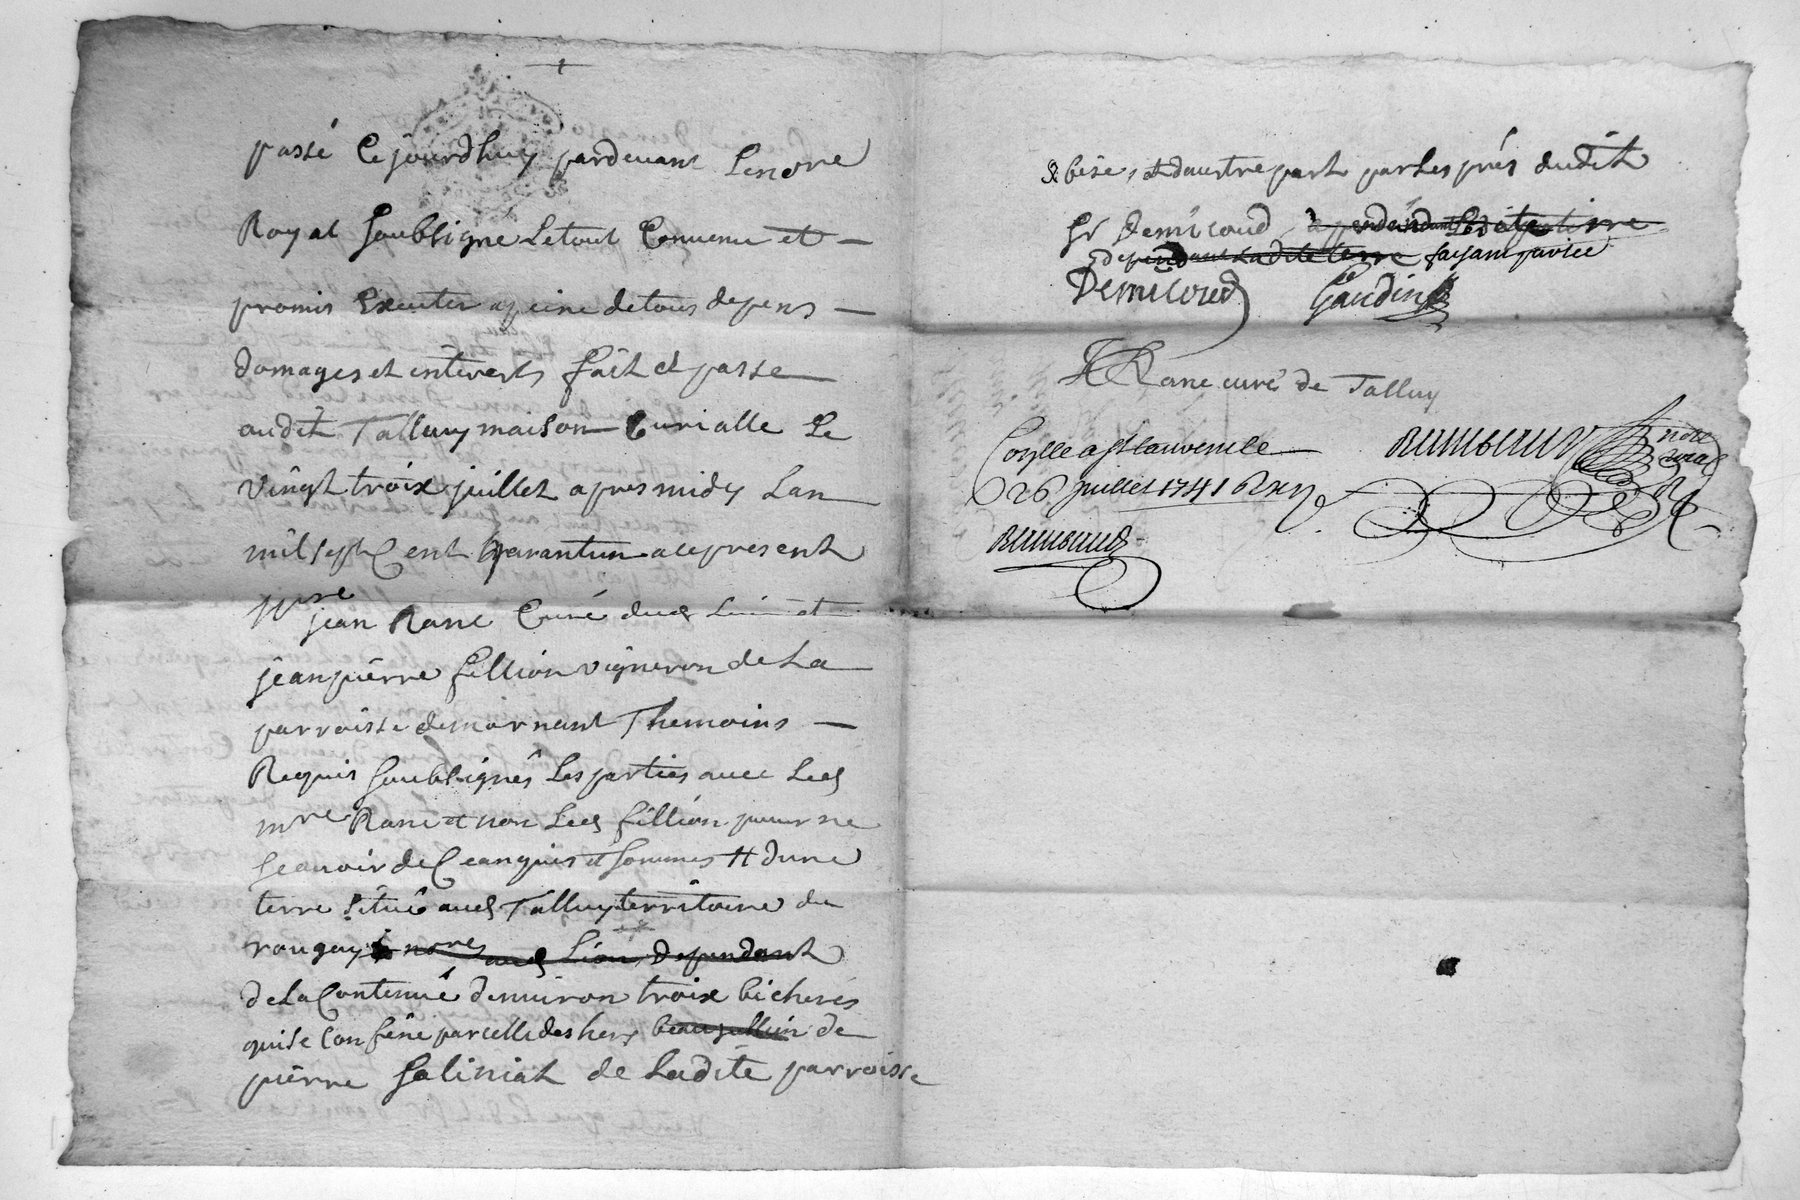 passé Cejourdhuy pardevant Lenore
Royal Soubsigné Letout Convenu et
promis Executer apeine detous depens
domages et interests fait et passe
audit Talluy maison Curialle Le
vingt troix juillet apres midy Lan
mil sept Cent quarantun acepresent
Mre jean Ranc Curé dud Lieu et
jean pierre fillion vigneron de La
parroisse demornant Themoins
Requis Soubsignés Les parties avec Led
mre Ranc et non Led fillion pour ne
Scavoir de Ce anquis et Sommes # dune
terre Situé aud Talluy territoire du
rougay nore aud Lion, dependant
de La Contenue denviron troix bicherés
quise confine parcelle des hers beaujullin de
pierre Saliniat de Ladite parroisse
& bize, et dautre part par Les prés dudit
Sr Demicoud, dependant Ladite terre
dependant Ladite terre faisant partie
Demicoud Gaudin
J Ranc curé de Talluy
Conlle a St Lauvent le
26 juillet 1741
nore